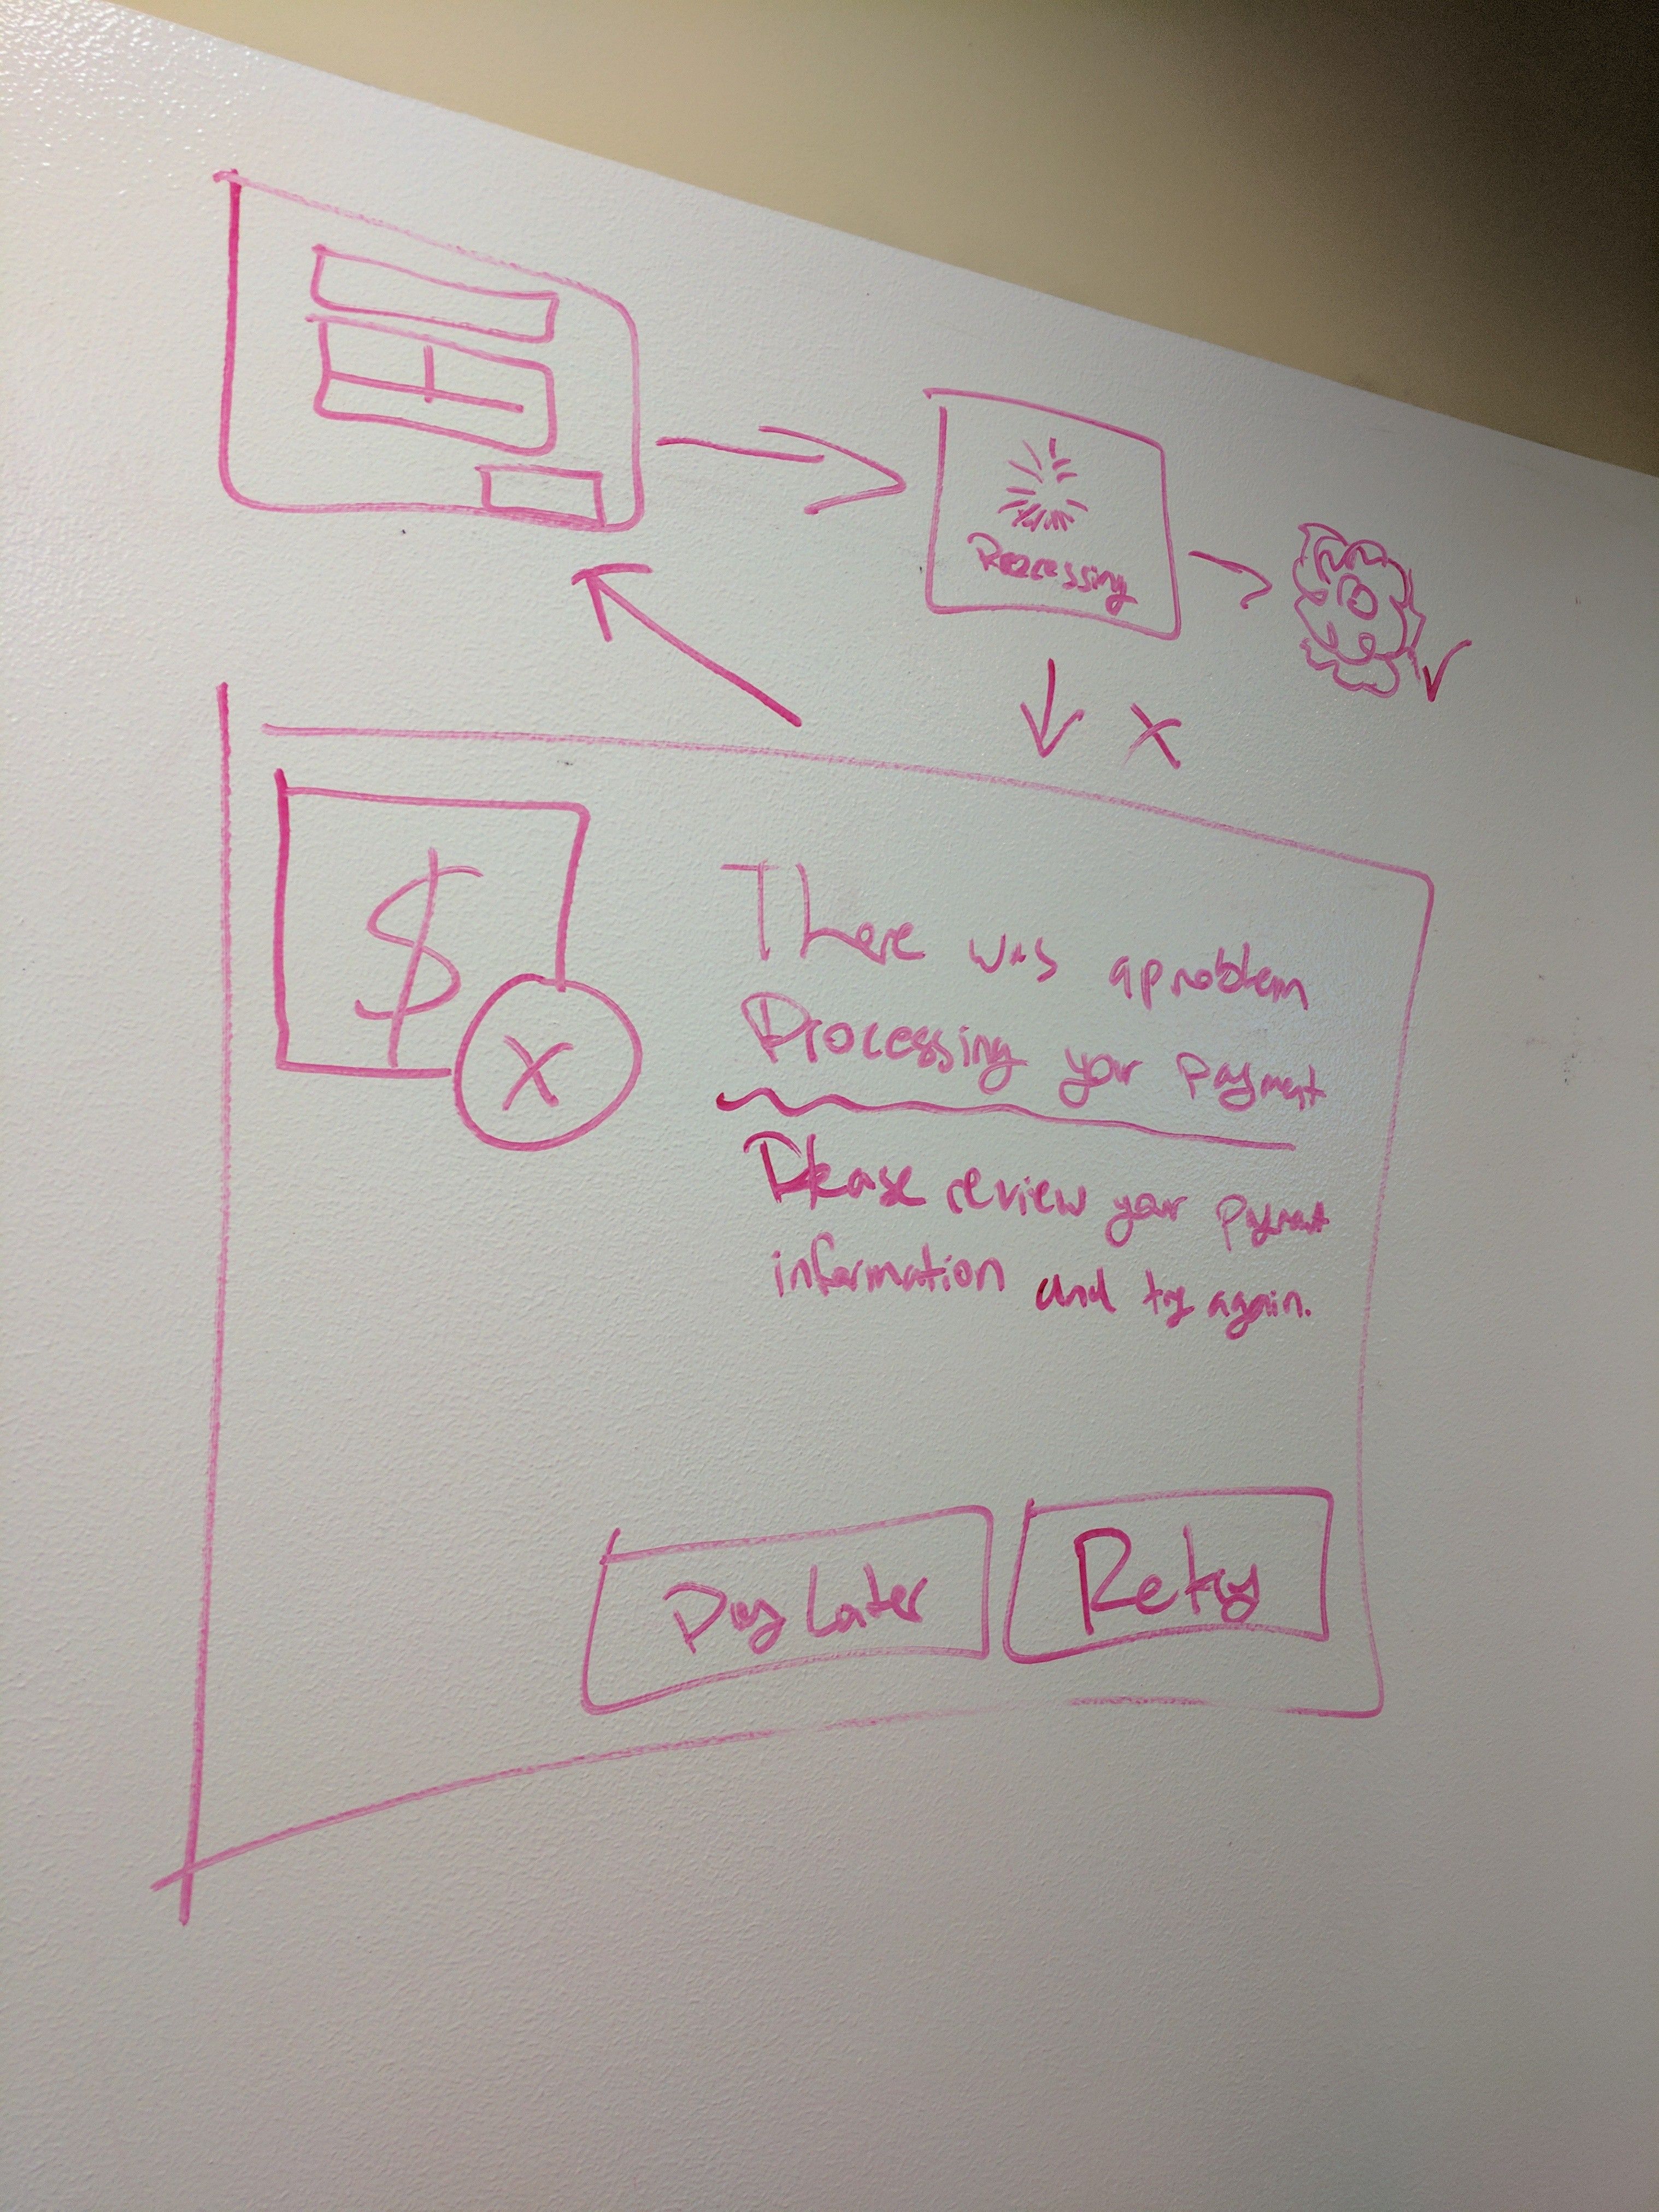 Processing
X
$
X
There was a problem
Processing your payment
Please review your payment
information and try again.
Pay Later
Retry